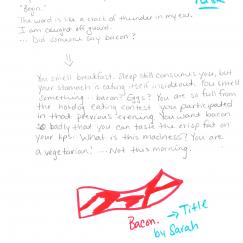 "Begin."
The word is like a crack of thunder in my ear.
I am caught off guard.
... Did someone say bacon?
You smell breakfast. Sleep still consumes you, but
your stomach is eating itself inside out. You smell
something: bacon? Eggs? You are so full from
the hotdog eating contest you participated
in that previous evening. You want bacon
so badly that you can taste the crisp fat on
your lips. What is this madness? You are
a vegetarian! ... Not this morning.
Bacon. → Title
by Sarah